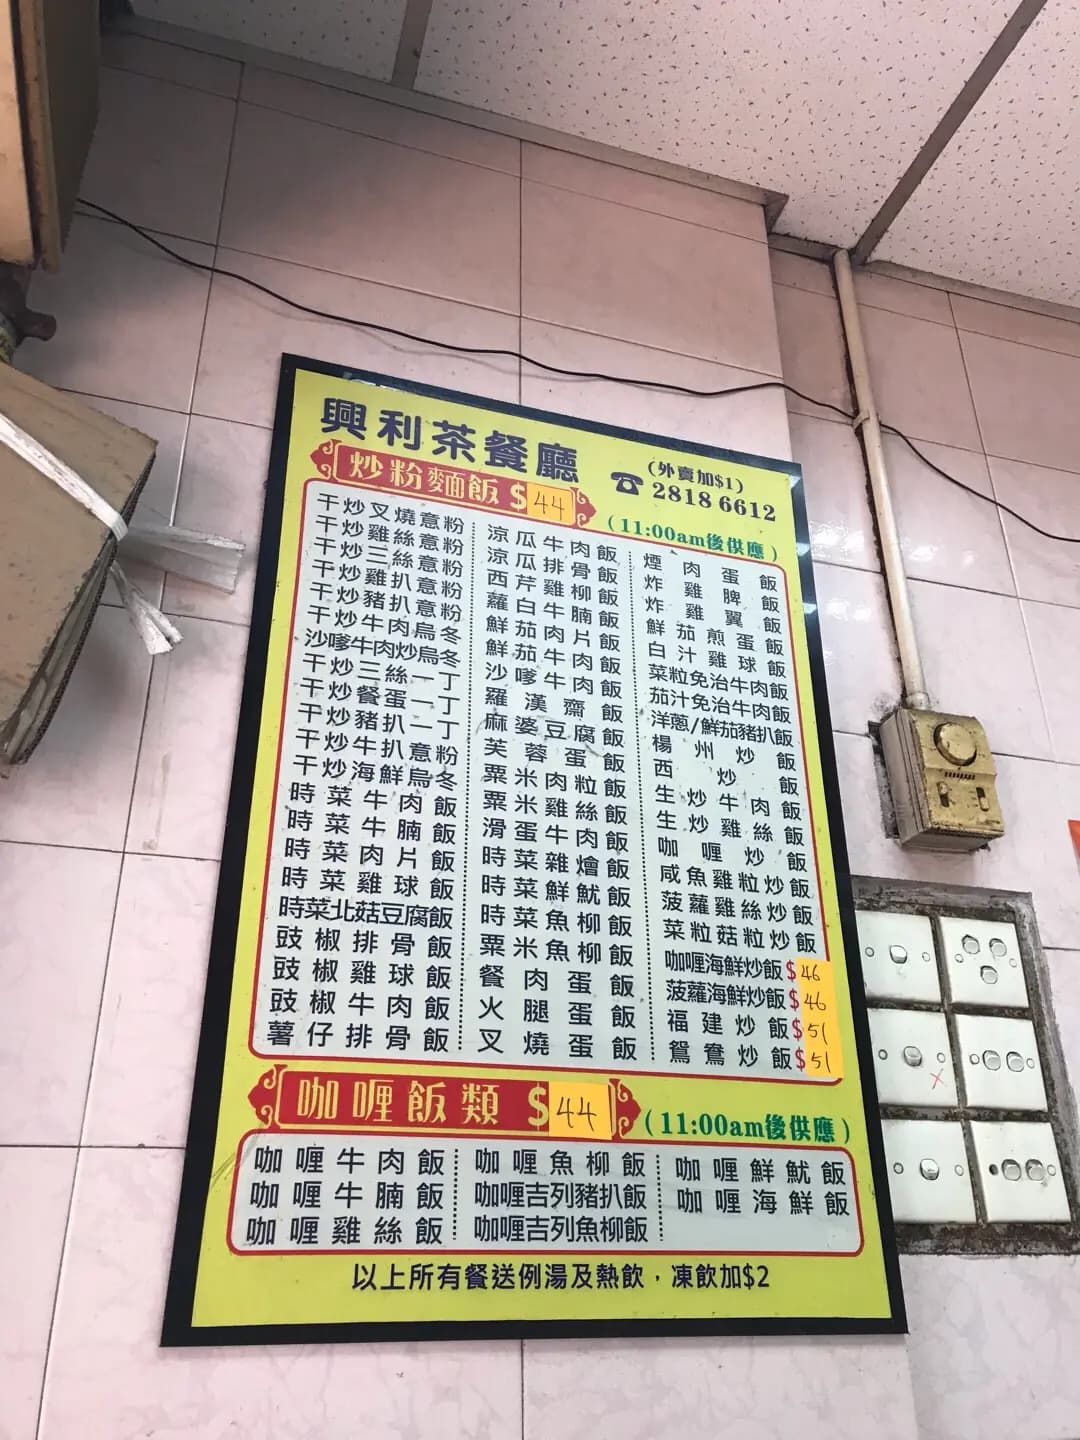 興利茶餐廳
(外賣加$1)
☎ 2818 6612
炒粉麵飯 $44
(11:00am後供應)
干炒叉燒意粉
干炒雞絲意粉
干炒三絲意粉
干炒雞扒意粉
干炒豬扒意粉
干炒牛肉烏冬
沙嗲牛肉炒烏冬
干炒三絲一丁
干炒餐蛋一丁
干炒豬扒一丁
干炒牛扒意粉
干炒海鮮烏冬
時菜牛肉飯
時菜牛腩飯
時菜肉片飯
時菜雞球飯
時菜北菇豆腐飯
豉椒排骨飯
豉椒雞球飯
豉椒牛肉飯
薯仔排骨飯
涼瓜牛肉飯
涼瓜排骨飯
西芹雞柳飯
蘿白牛腩飯
鮮茄肉片飯
鮮茄牛肉飯
沙嗲牛肉飯
羅漢齋飯
麻婆豆腐飯
芙蓉蛋飯
粟米肉粒飯
粟米雞絲飯
滑蛋牛肉飯
時菜雜燴飯
時菜鮮魷飯
時菜魚柳飯
粟米魚柳飯
餐肉蛋飯
火腿蛋飯
叉燒蛋飯
煙肉蛋飯
炸雞髀飯
炸雞翼飯
鮮茄煎蛋飯
白汁雞球飯
菜粒免治牛肉飯
茄汁免治牛肉飯
洋蔥/鮮茄豬扒飯
楊州炒飯
西炒飯
生炒牛肉飯
生炒雞絲飯
咖喱炒飯
咸魚雞粒炒飯
菠蘿雞絲炒飯
菜粒菇粒炒飯
咖喱海鮮炒飯$46
菠蘿海鮮炒飯$46
福建炒飯$51
鴛鴦炒飯$51
咖喱飯類 $44
(11:00am後供應)
咖喱牛肉飯
咖喱牛腩飯
咖喱雞絲飯
咖喱魚柳飯
咖喱吉列豬扒飯
咖喱吉列魚柳飯
咖喱鮮魷飯
咖喱海鮮飯
以上所有餐送例湯及熱飲，凍飲加$2